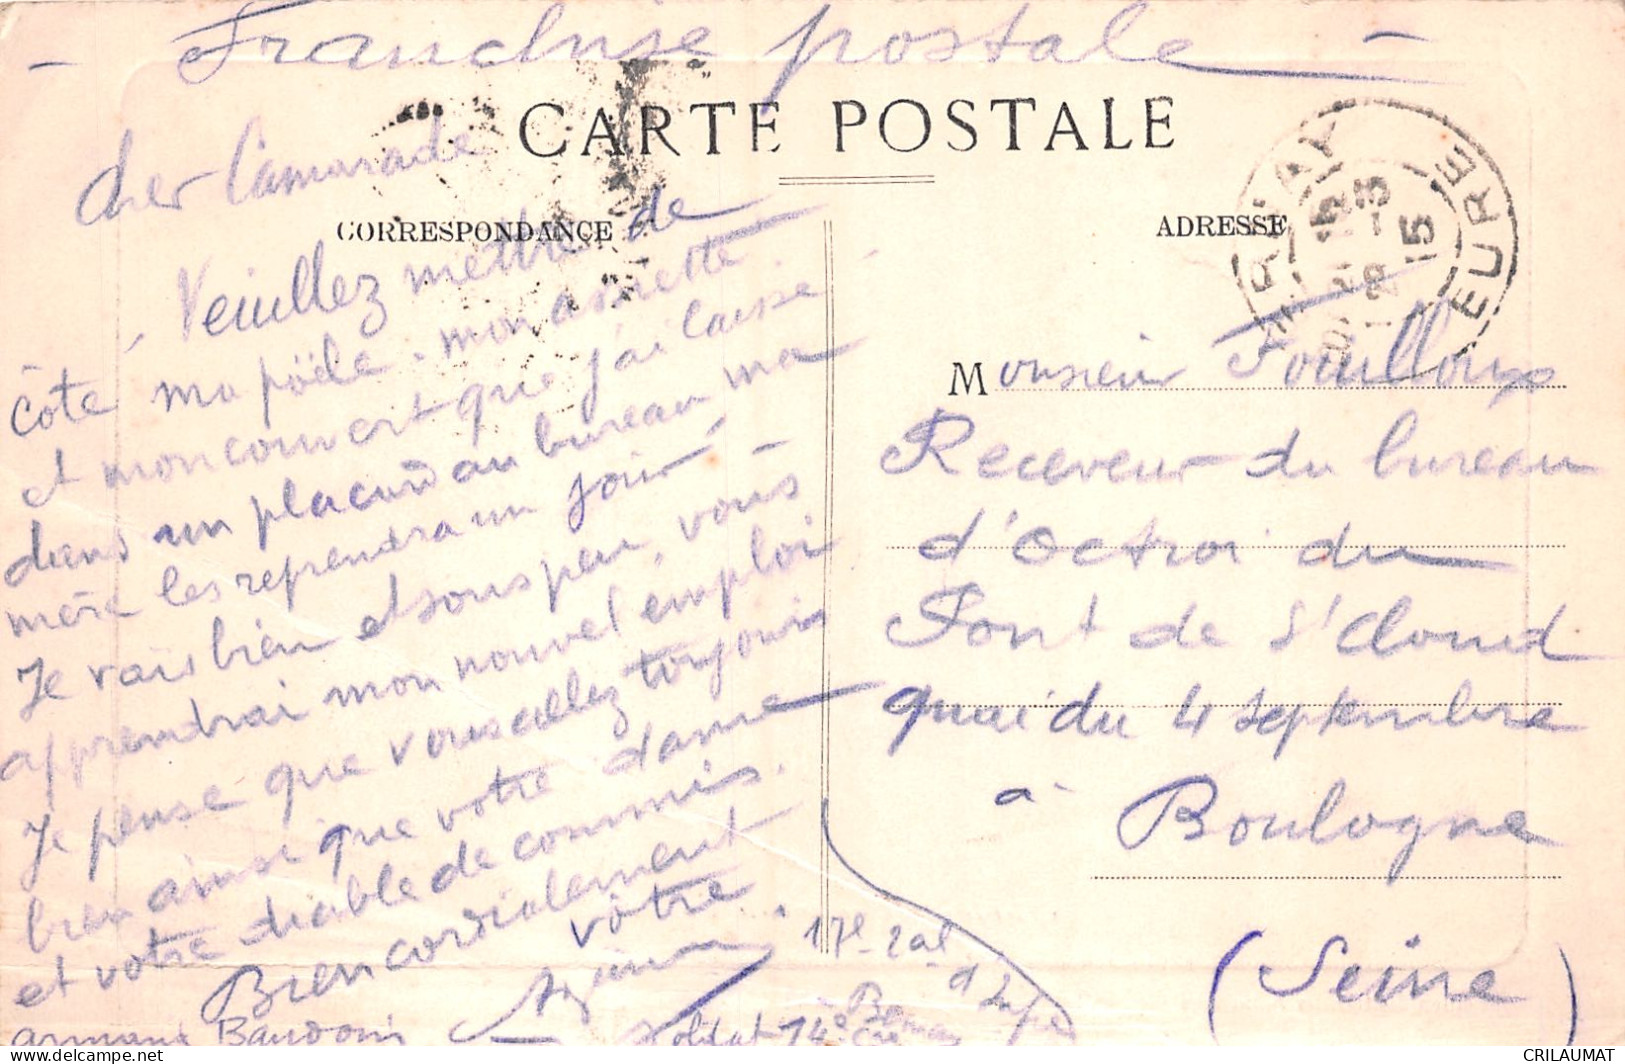 - Franchise postale -
CARTE POSTALE
CORRESPONDANCE
ADRESSE
EURE
15
Cher Camarade
Veuillez mettre de
côté, ma poële. mon assiette
et mon couvert que j'ai laissé
dans un placard au bureau, ma
mère les reprendra un jour,
Je vais bien et sous peu, vous
apprendrai mon nouvel emploi
Je pense que vous allez toujours
bien ainsi que votre dame
et votre diable de commis.
Bien cordialement
vôtre
Armand Baudoin
Soldat 14e Cie
17e
Monsieur Foulloux
Receveur du bureau
d'Octroi du
Pont de St Cloud
quai du 4 septembre
à Boulogne
(Seine)
CRILAUMAT